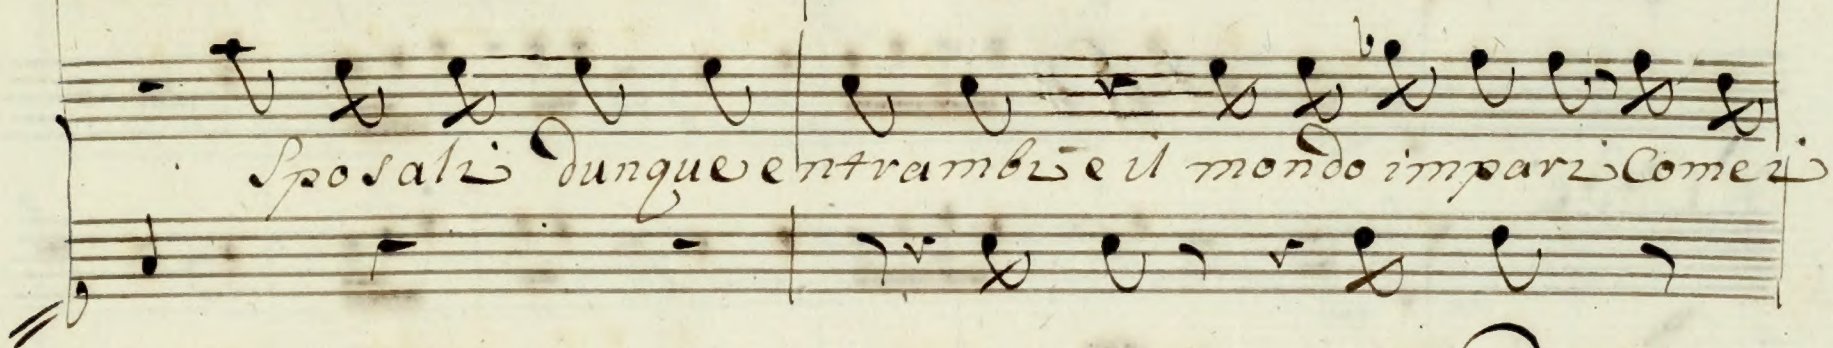 Sposali dunque entrambi e il mondo impari Come i